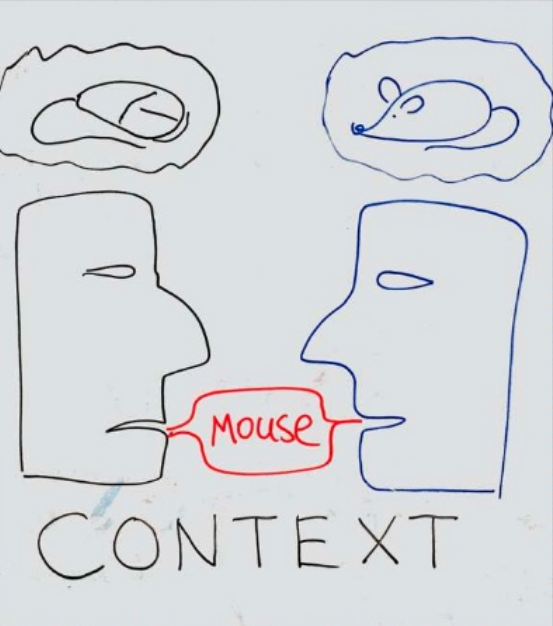 Mouse
CONTEXT